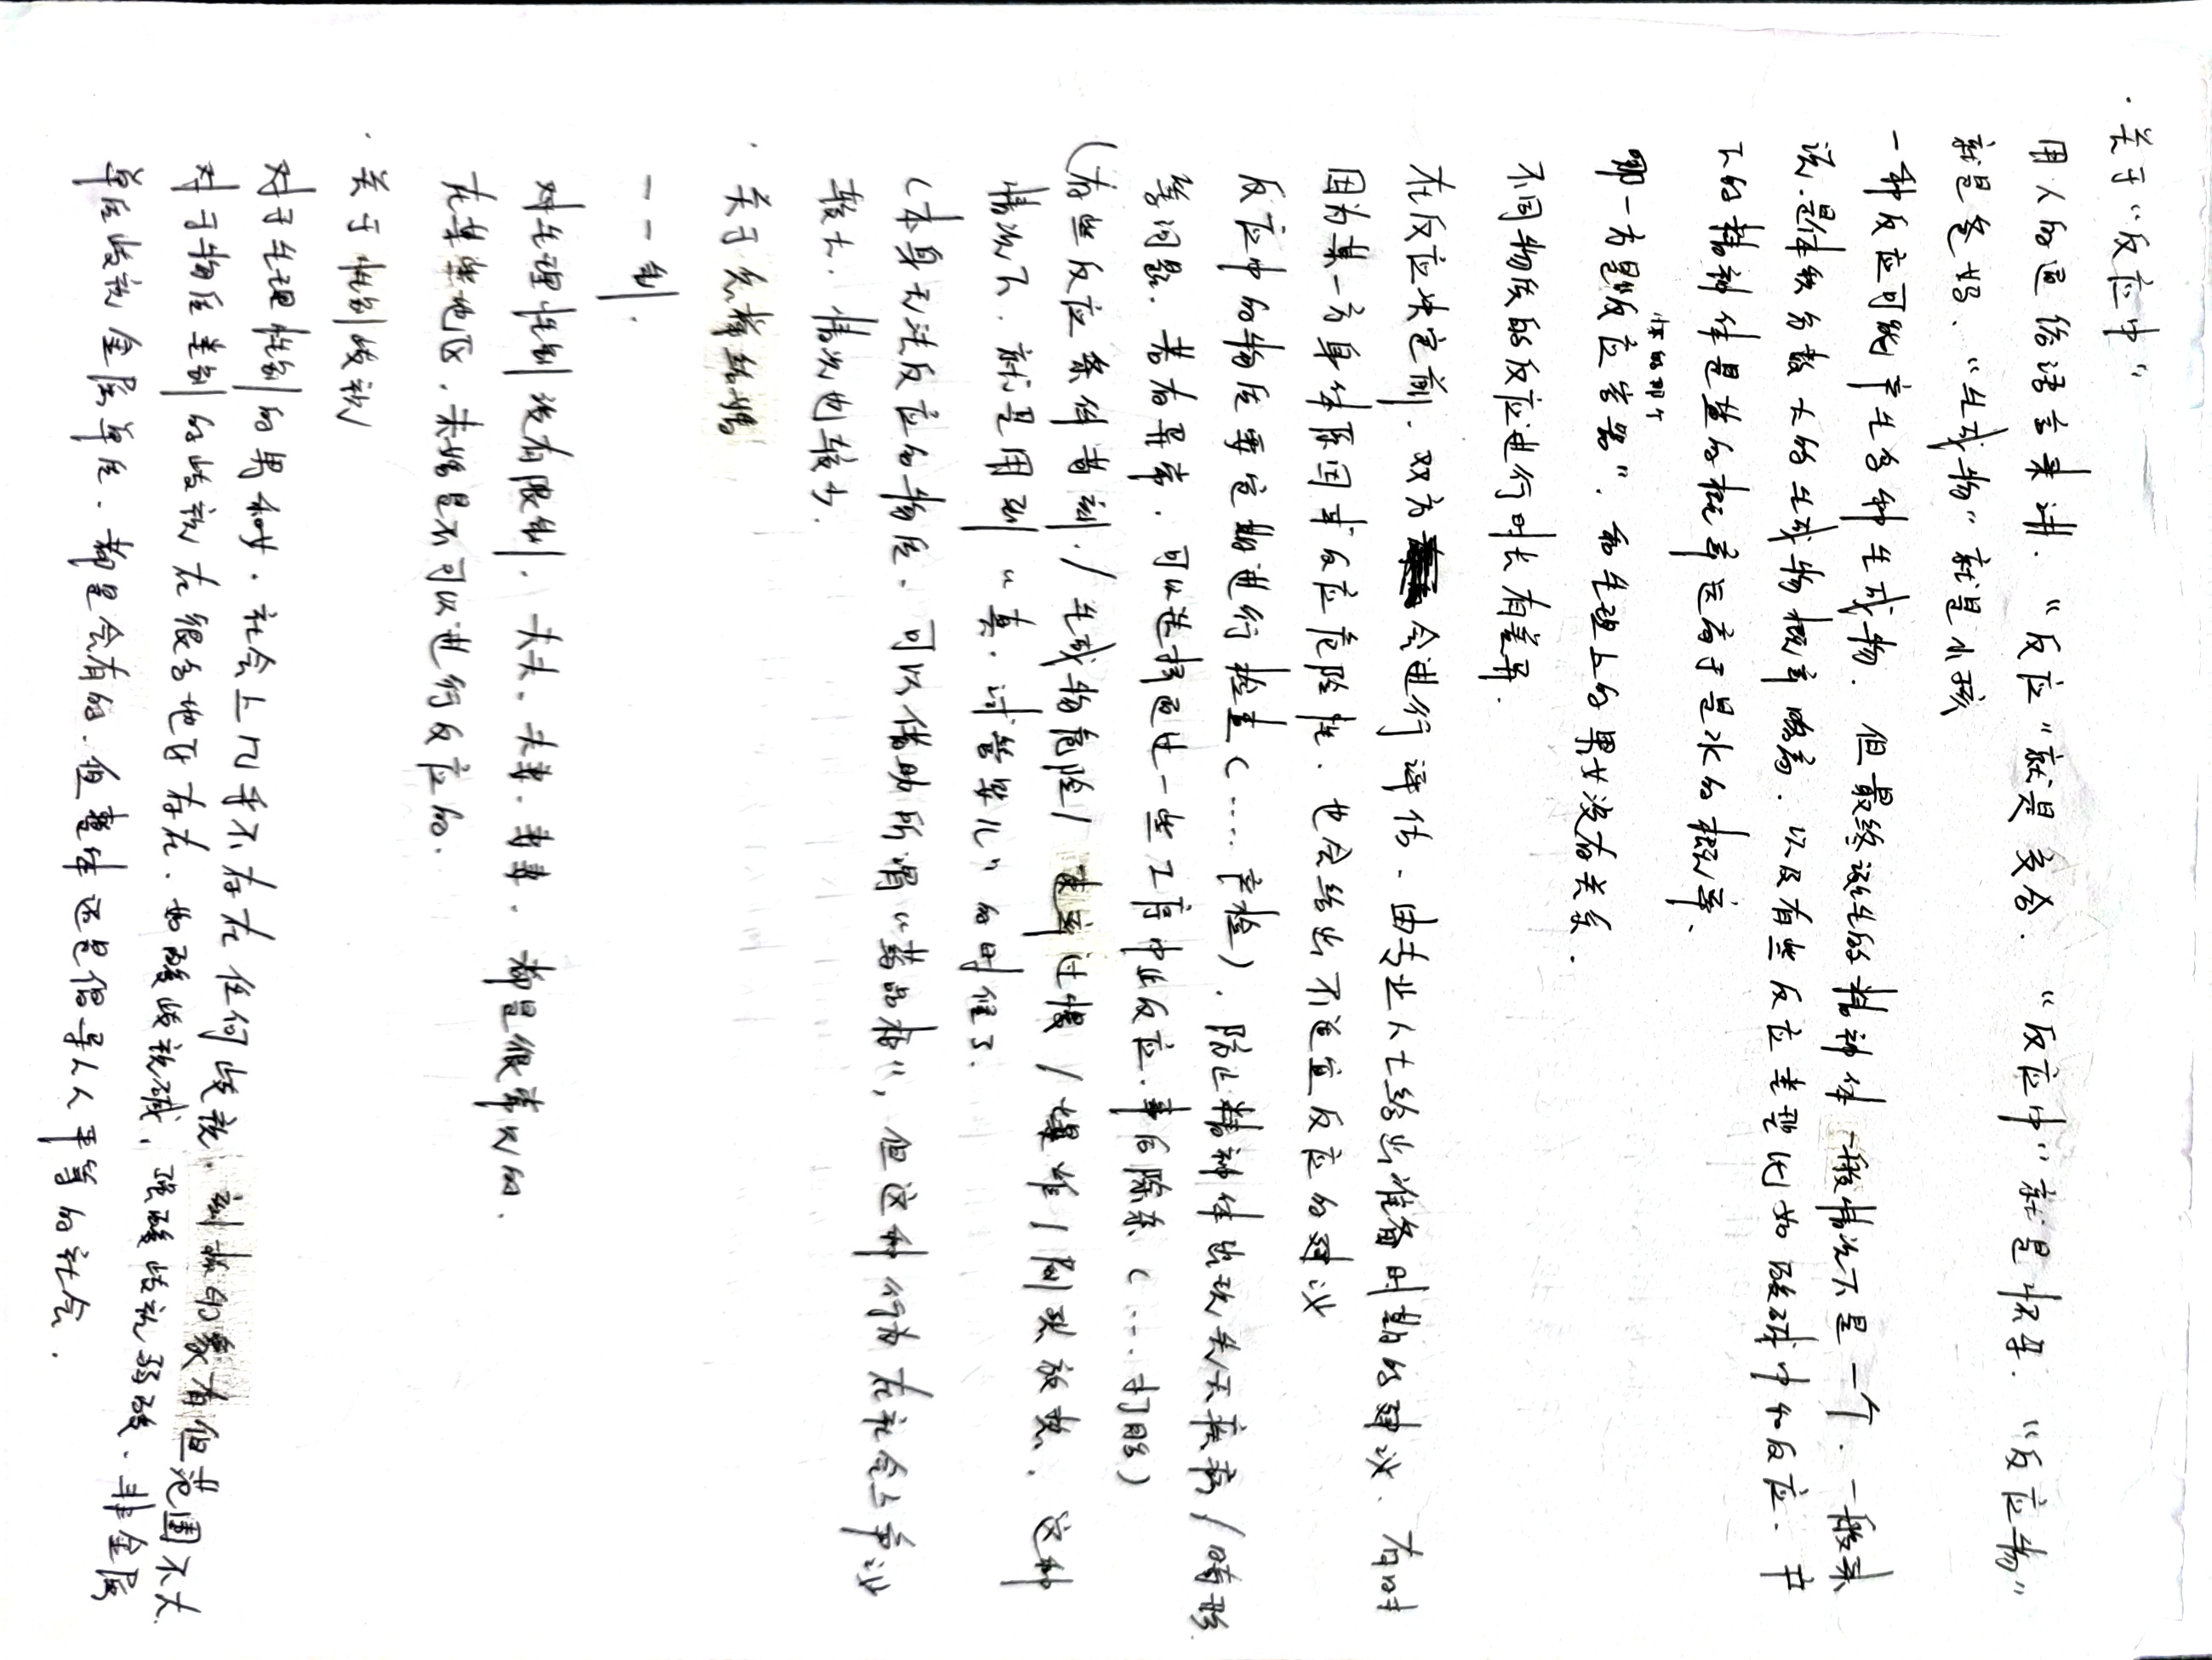 · 关于“反应中”
用人的通俗语言来讲. “反应”就是交合. “反应中”就是怀孕. “反应物”
就是爸妈. “生成物”就是小孩
一种反应可能产生多种生成物. 但最终诞生的精神体一般情况下是一个. 一般来
说.是系数大的生成物概率略高. 以及有些反应类型比如酸碱中和反应. 产
下的精神体是盐的概率远高于是水的概率.
哪一方是“反应容器”. 和生理上的男女没有关系.
怀的那个
不同物质的反应进行时长有差异.
在反应决定前. 双方会进行评估. 由专业人士给出准备时期的建议. 有时
因为某一方身体原因或反应危险性. 也会给出不适宜反应的建议
反应中的物质要定期进行检查(……产检). 防止精神体出现先天疾病/畸形
等问题. 若有异常. 可以选择通过一些工序中止反应.事后除杂(……打胎)
(有些反应条件苛刻./生成物危险/速率过慢/爆炸/剧烈放热. 这种
情况下. 就是用到“真·试管婴儿”的时候了.
(本身无法反应的物质. 可以借助所谓“药品库”, 但这种行为在社会上争议
较大. 情况也较少.
· 关于允许结婚
一一制.
对生理性别没有限制. 夫夫. 夫妻. 妻妻. 都是很常见的.
在某些地区. 未婚是不可以进行反应的.
· 关于性别歧视
对于生理性别的男和女. 社会上几乎不存在任何歧视. 刻板印象有但范围不大.
对于物质类别的歧视在很多地区存在. 如酸歧视碱, 强酸歧视弱酸. 非金属
单质歧视金属单质. 都是会有的. 但整体还是倡导人人平等的社会.